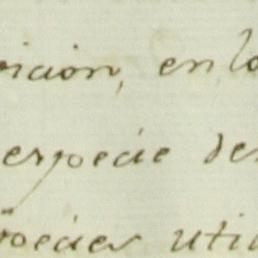 icion, en lo
especie de
pecies uti